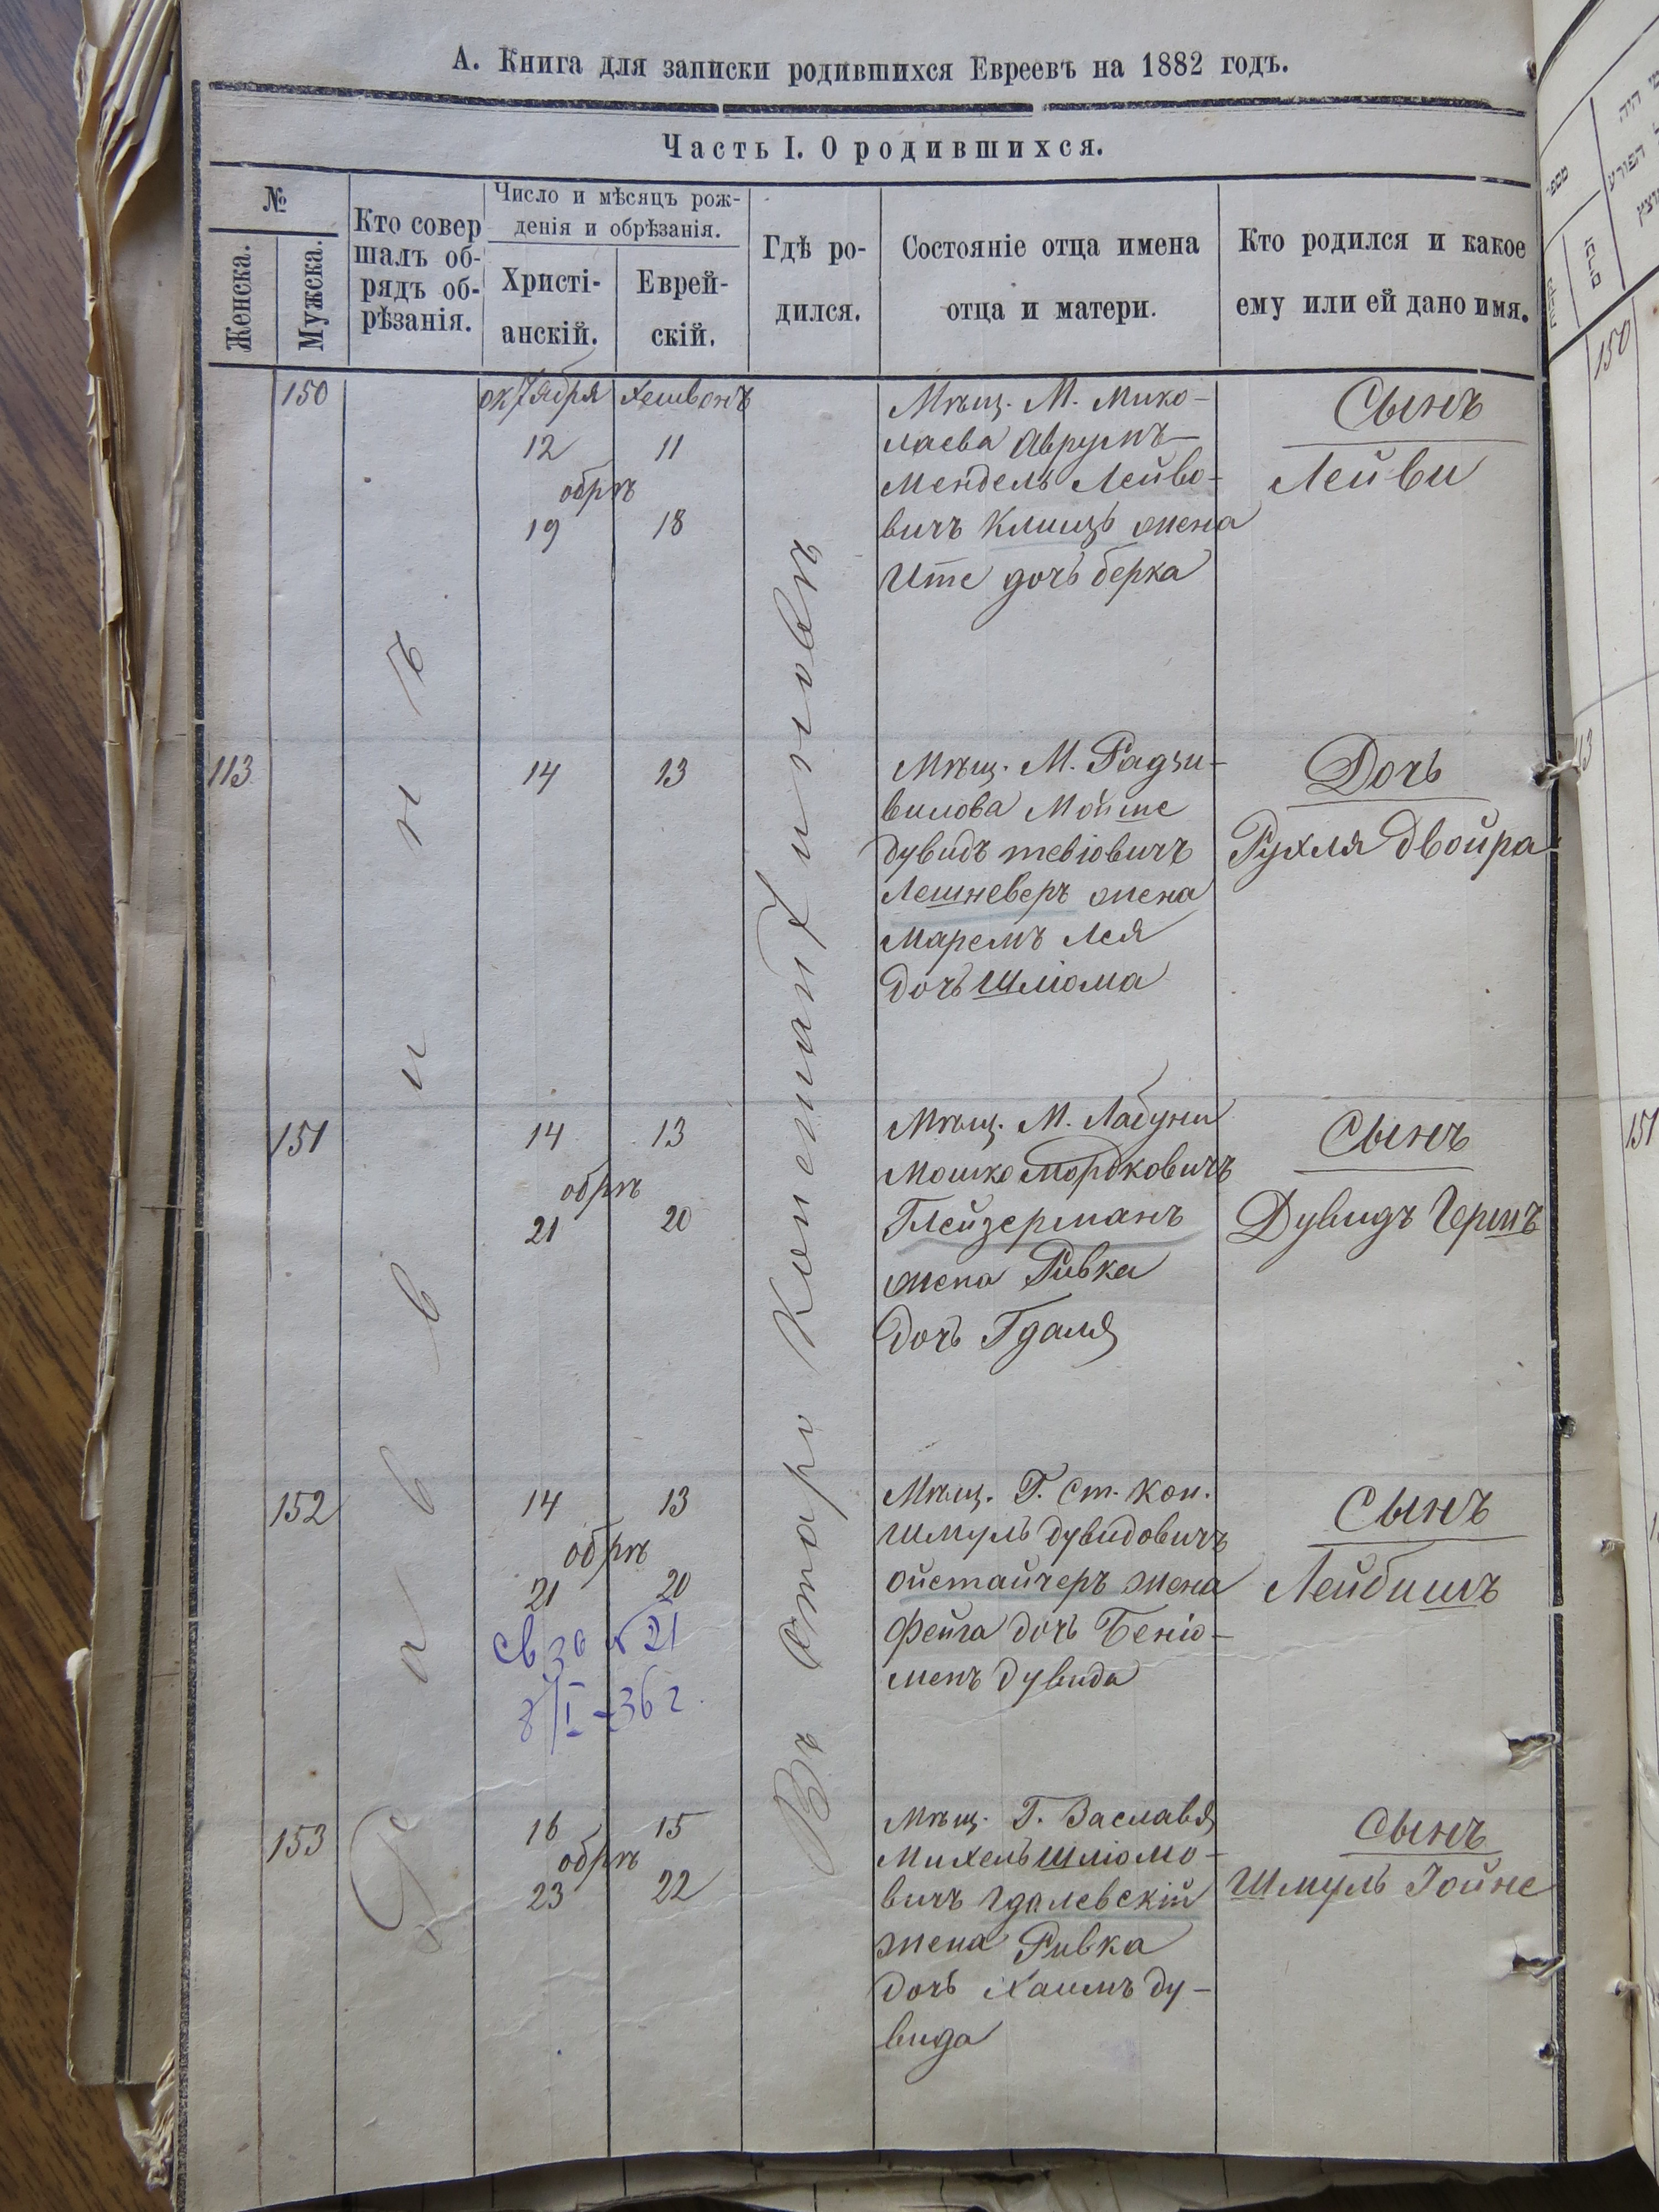 А. Книга для записки родившихся Евреевъ на 1882 годъ.
Часть I. О родившихся.
№
Женска.
Мужска.
Кто совер
шалъ об-
рядъ об-
рѣзанія.
Число и мѣсяцъ рож-
денія и обрѣзанія.
Христі-
анскій.
Еврей-
скій.
Гдѣ ро-
дился.
Состояніе отца имена
отца и матери.
Кто родился и какое
ему или ей дано имя.
Раввинъ
Въ Старо Константиновѣ
150
октября хешвонъ
12 11
обрѣ
19 18
Мѣщ. М. Мико-
лаева Аврумъ-
Мендель Лейво-
вичъ Клищъ жена
Ите дочь берка
Сынъ
Лейви
113
14 13
Мѣщ. М. Радзи-
вилова Мойше
дувидъ тевіовичъ
Лешневеръ жена
Маремъ Лея
дочь Шліома
Дочь
Рухля Двойра
151
14 13
обрѣ
21 20
Мѣщ. М. Лабуни
Мошко Мордковичъ
Глейзерманъ
жена Ривка
дочь Гдаля
Сынъ
Дувидъ Гершъ
152
14 13
обрѣ
21 20
св 30 № 21
8/I-36 г.
Мѣщ. Г. Ст. Кон.
Шмуль дувидовичъ
ойстайчеръ жена
Фейга дочь Беніо-
менъ дувида
Сынъ
Лейбишъ
153
16 15
обрѣ
23 22
Мѣщ. Г. Заславя
Михель Шліомо-
вичъ Гдалевскій
жена Ривка
дочь Хаимъ ду-
вида
Сынъ
Шмуль Іойне
150
151